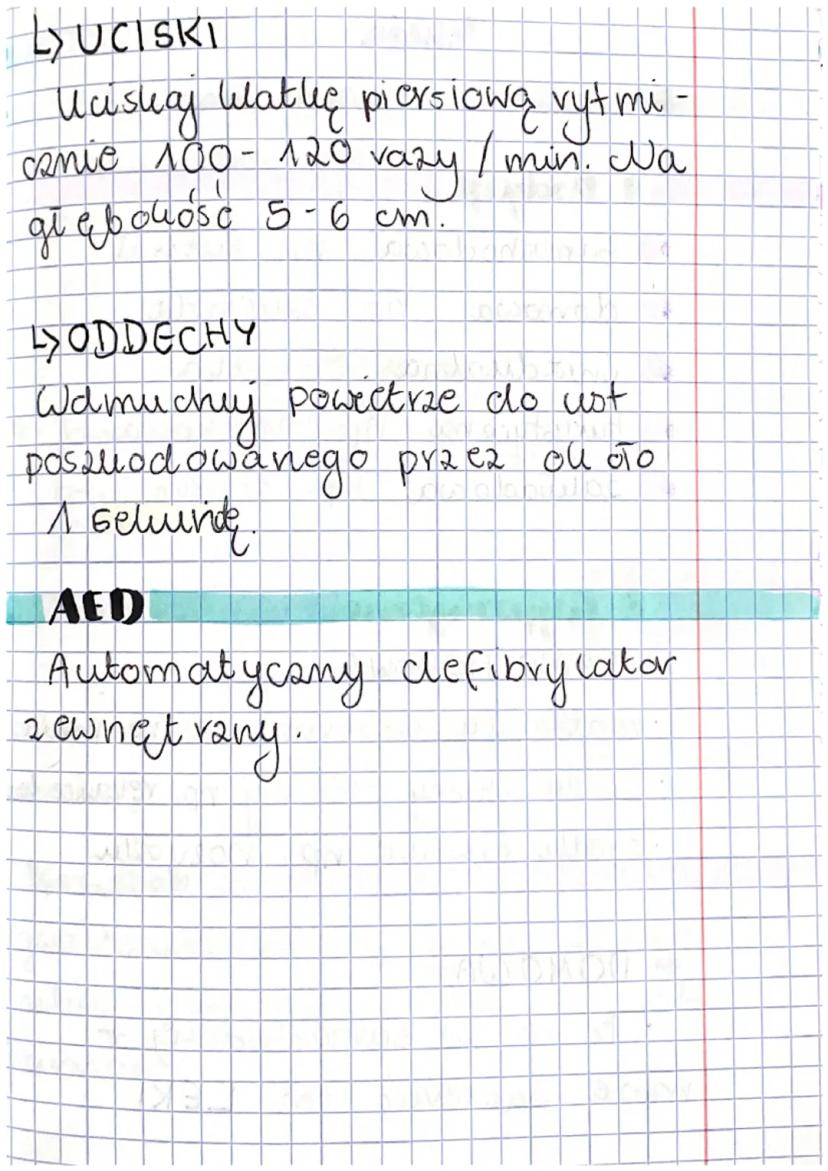 ↳ UCISKI
Uciskaj klatkę piersiową rytmi-
cznie 100 - 120 razy / min. Na
głębokość 5 - 6 cm.
↳ ODDECHY
Wdmuchuj powietrze do ust
poszkodowanego przez około
1 sekundę.
AED
Automatyczny defibrylator
zewnętrzny.